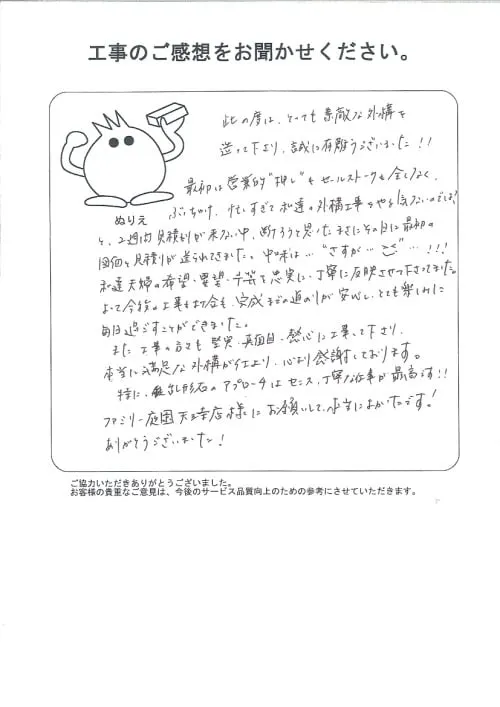 工事のご感想をお聞かせください。
此の度は、とっても素敵な外構を
造って下さり、誠に有難うございました!!
最初は営業的"押し"もセールストークも全くなく、
ぶっちゃけ、忙しすぎて私達の外構工事をやる気ないのでは?
ぬりえ
と、2週間見積りが来ない中、断ろうと思ったまさにその日に最初の
図面と見積りが送られてきました。中味は…"さすが…""…!!!
私達夫婦の希望・要望・予算を忠実に、丁寧に反映させて下さってました。
よって今後の工事も打合せも、完成までの道のりが安心し、とても楽しみに
毎日過ごすことができました。
また工事の方々も堅実・真面目・熱心に工事して下さり、
本当に満足な外構が仕上り、心より感謝しております。
特に、乱形石のアプローチはセンス、丁寧な仕事が最高です!!
ファミリー庭園天王寺店様にお願いして、本当によかったです!
ありがとうございました!
ご協力いただきありがとうございました。
お客様の貴重なご意見は、今後のサービス品質向上のための参考にさせていただきます。